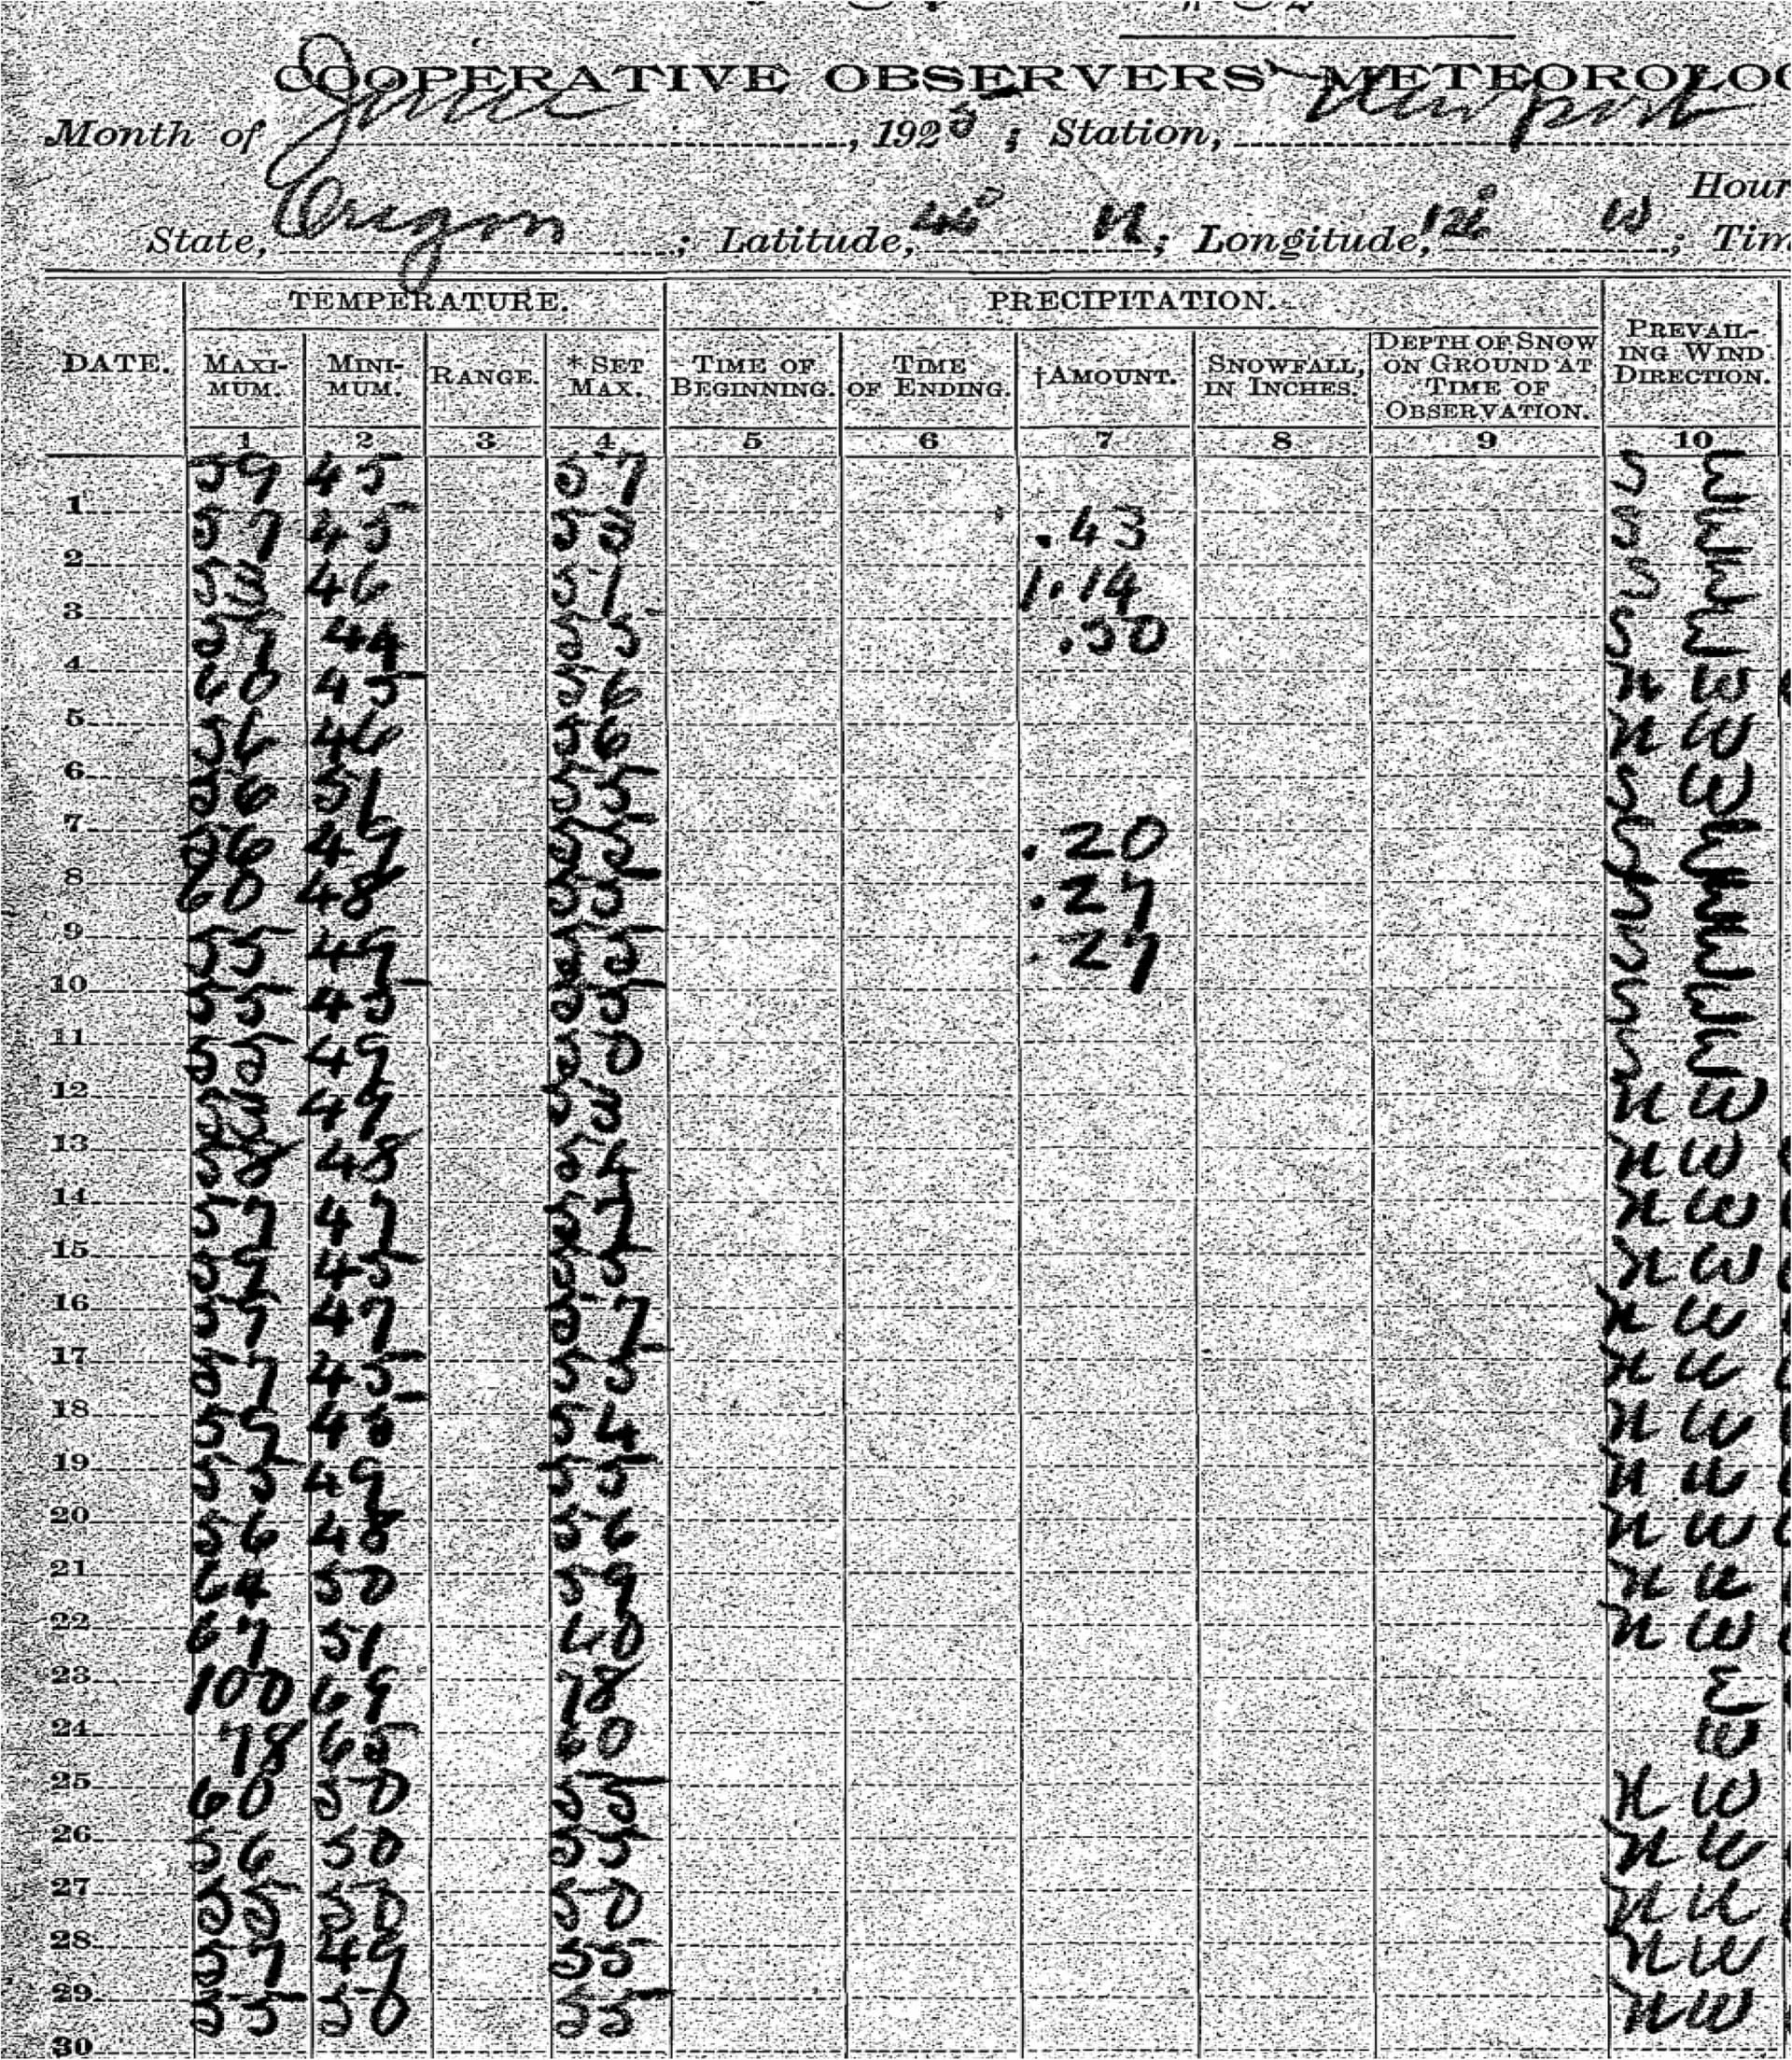 COOPERATIVE OBSERVERS' METEOROLOG
Month of June, 1925; Station, Newport
Hour
State, Oregon; Latitude, 45° N; Longitude, 126° W; Tim
TEMPERATURE. PRECIPITATION.
DATE. MAXI-MUM. MINI-MUM. RANGE. *SET MAX. TIME OF BEGINNING. TIME OF ENDING. †AMOUNT. SNOWFALL, IN INCHES. DEPTH OF SNOW ON GROUND AT TIME OF OBSERVATION. PREVAIL-ING WIND DIRECTION.
1 2 3 4 5 6 7 8 9 10
1 59 45 57 S E
2 57 45 53 .43 S E
3 53 46 51 1.14 S E
4 57 44 55 .30 S E
5 60 45 56 N W
6 56 46 56 N W
7 56 51 55 S W
8 56 49 55 .20 S E
9 60 48 55 .27 S E
10 55 49 55 .27 S E
11 55 45 55 S E
12 55 49 50 S E
13 53 49 53 N W
14 58 48 54 N W
15 57 47 57 N W
16 57 45 55 N W
17 57 47 57 N W
18 57 45 55 N W
19 57 45 54 N W
20 55 49 55 N W
21 56 48 56 N W
22 64 50 59 N W
23 67 51 60 N W
24 100 69 78 E
25 78 65 60 W
26 60 50 55 N W
27 56 50 55 N W
28 55 50 50 N W
29 57 49 55 N W
30 55 50 55 N W